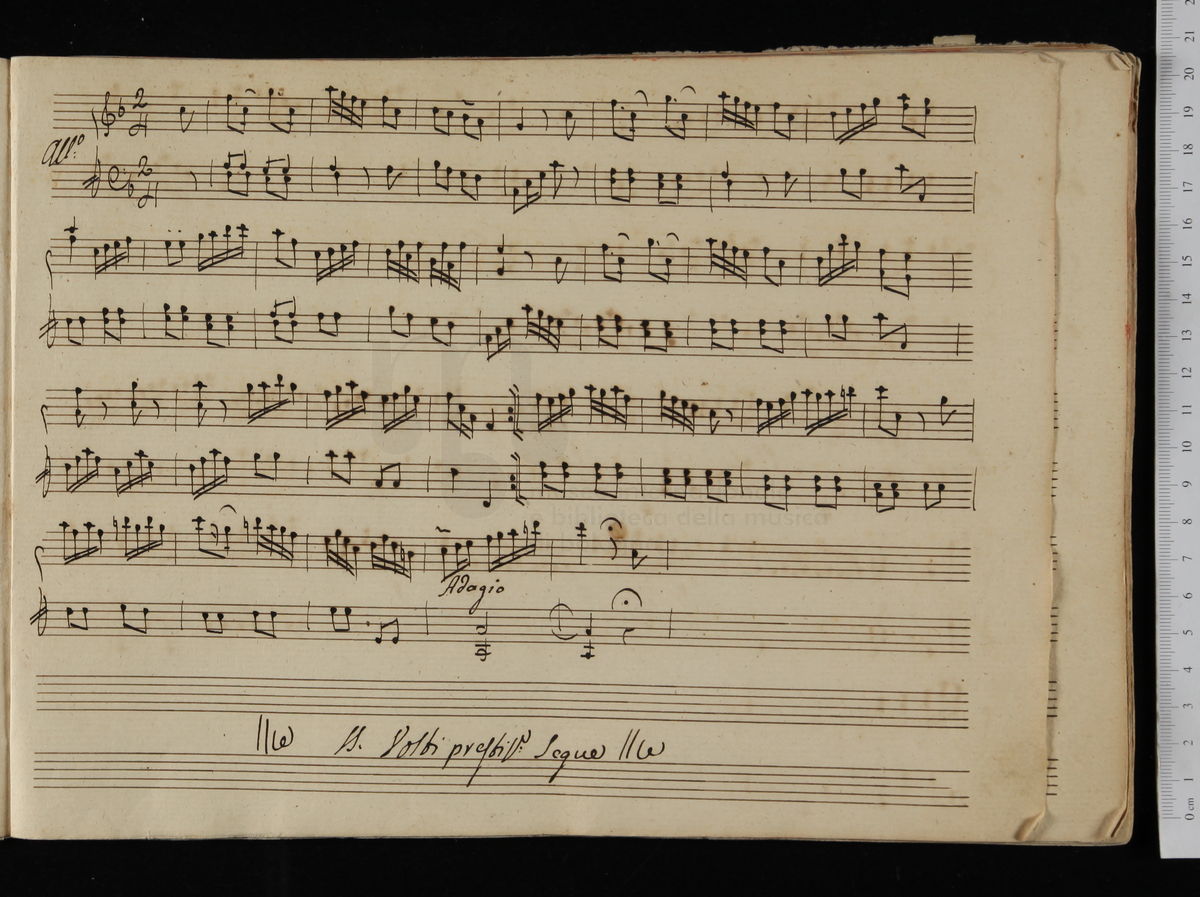 All:º
2
4
2
4
Adagio
Volti prestisº: Segue
e biblioteca della musica
0 cm 1 2 3 4 5 6 7 8 9 10 11 12 13 14 15 16 17 18 19 20 21